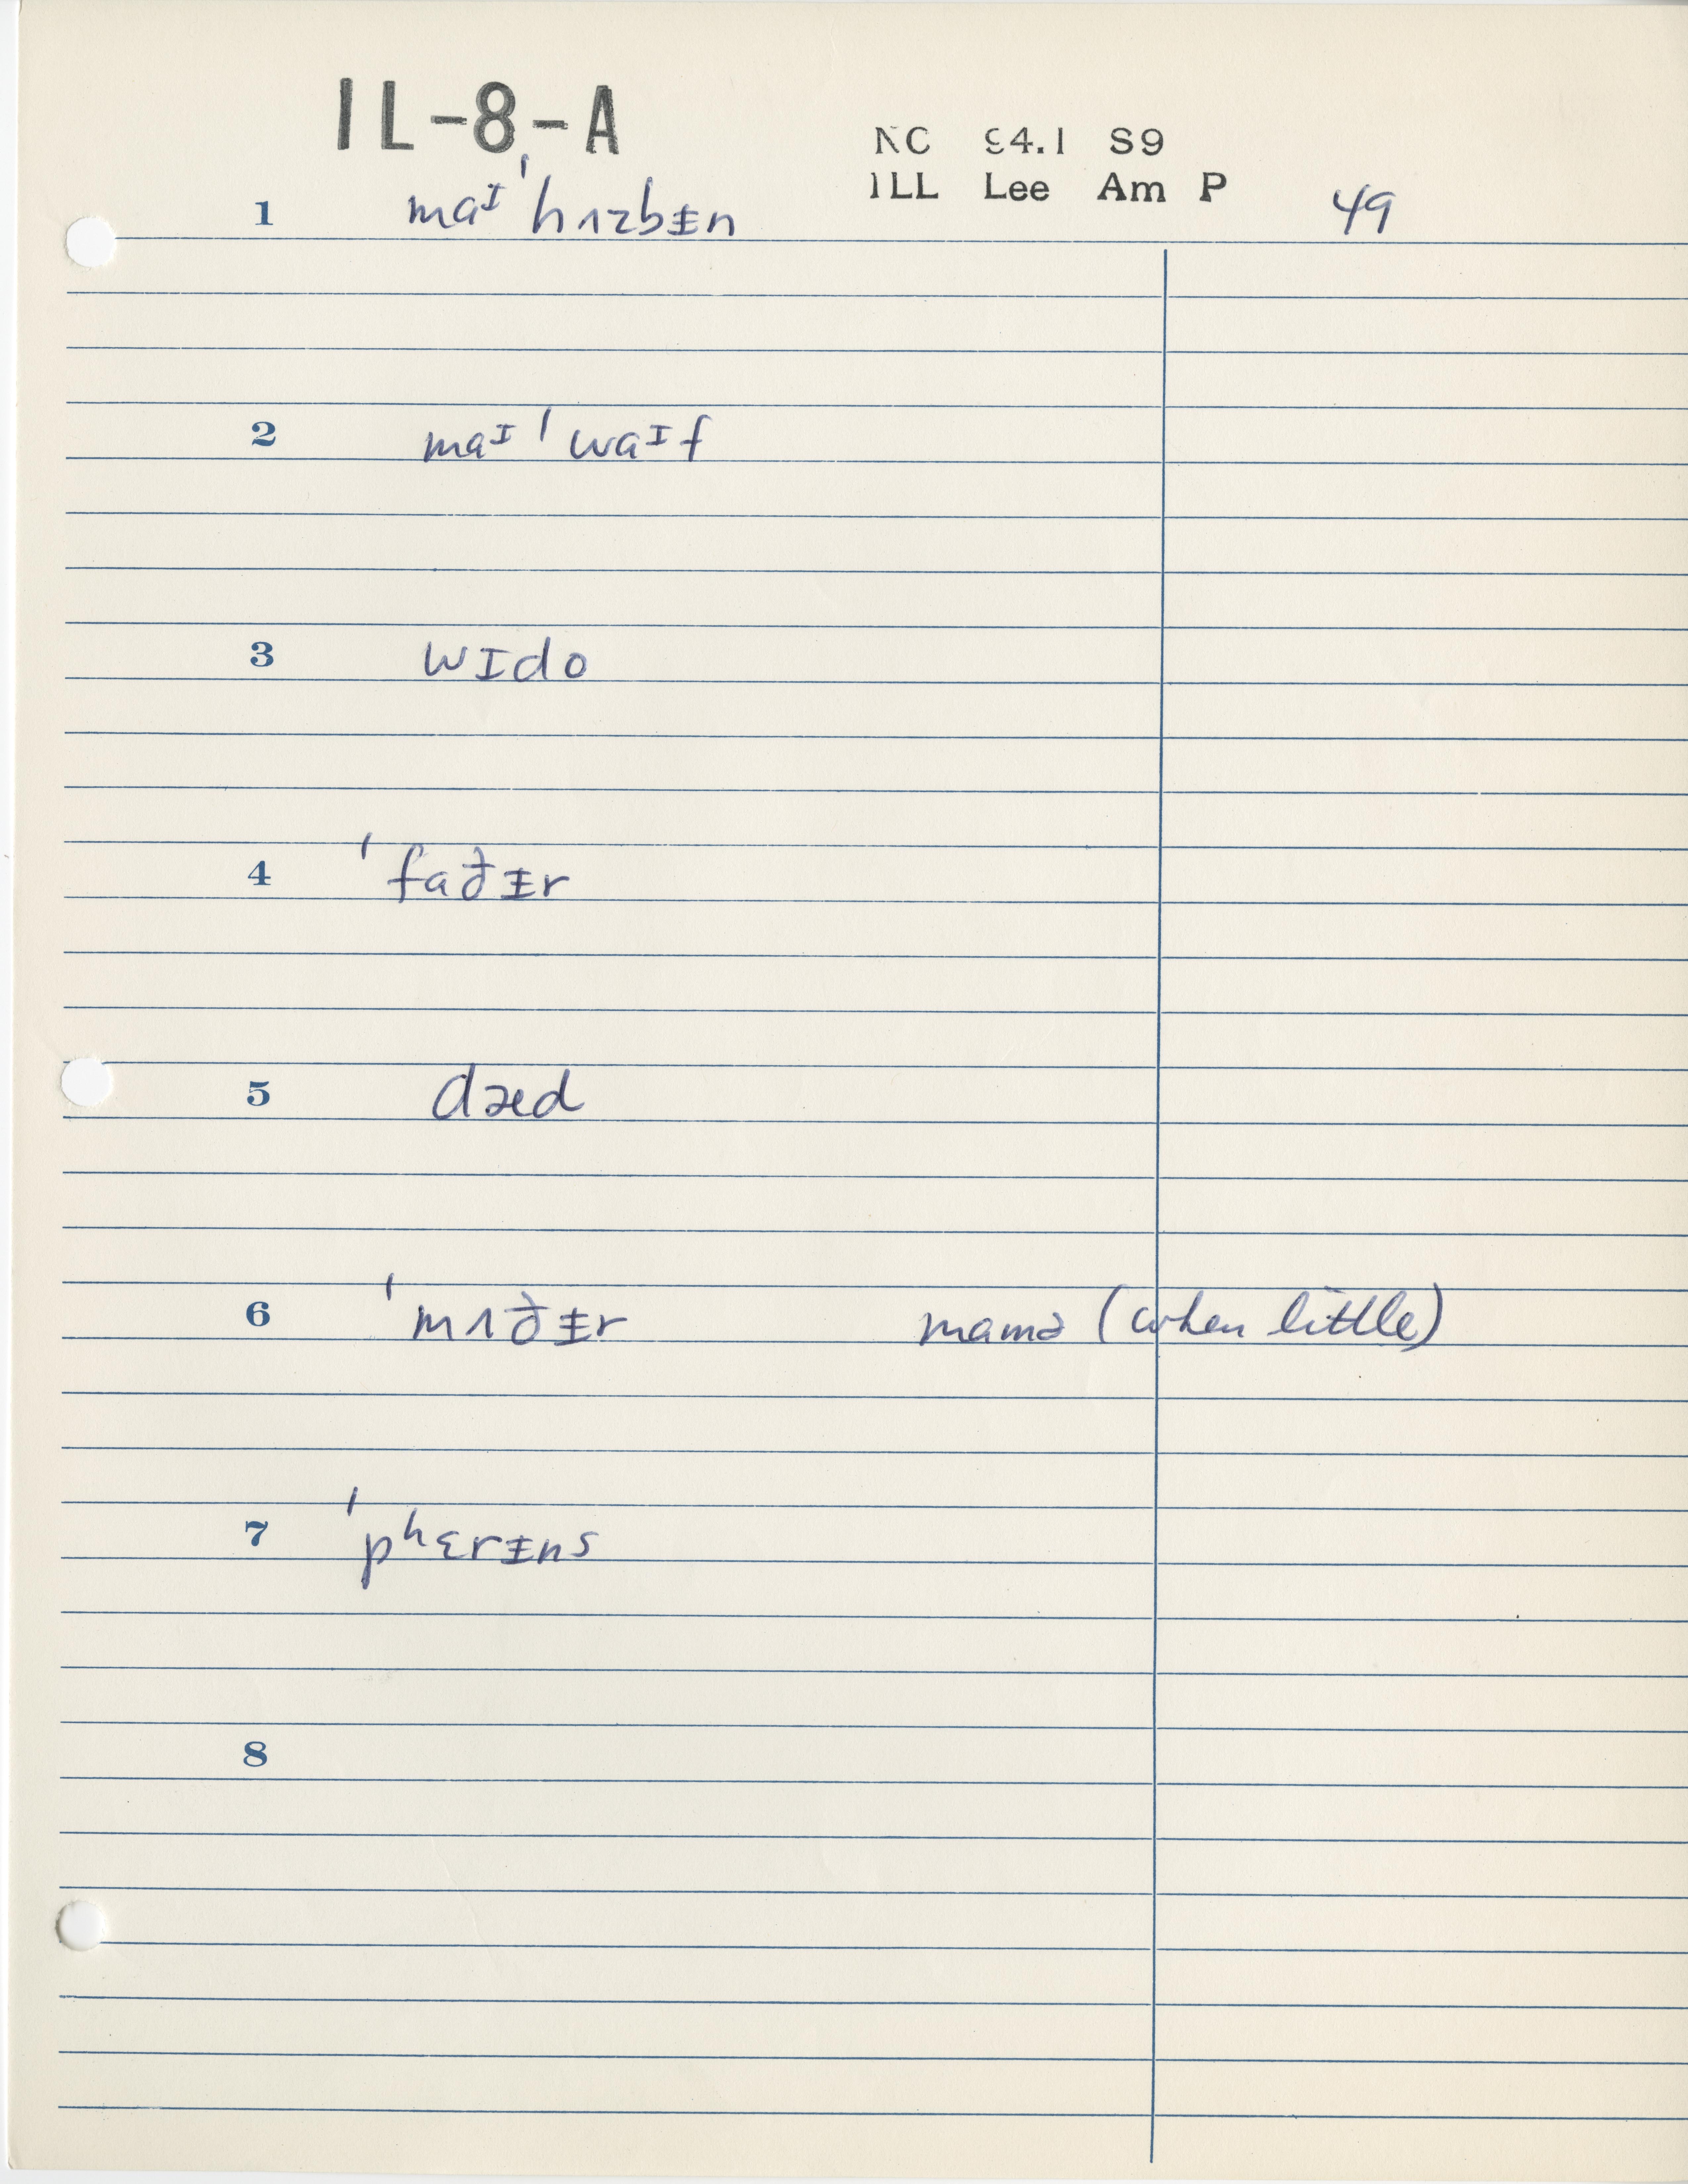 IL-8-A
NC 94.1 S9
ILL Lee Am P 49
1 maᶦ ˈhʌzbᵻn
2 maᶦ ˈwaᶦf
3 wɪdo
4 ˈfaðᵻr
5 dæd
6 ˈmʌðᵻr mamə (when little)
7 ˈpʰɛrᵻns
8